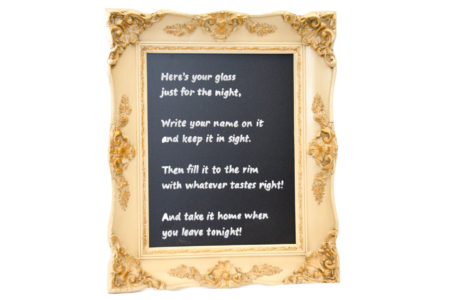 Here's your glass
just for the night,
Write your name on it
and keep it in sight.
Then fill it to the rim
with whatever tastes right!
And take it home when
you leave tonight!